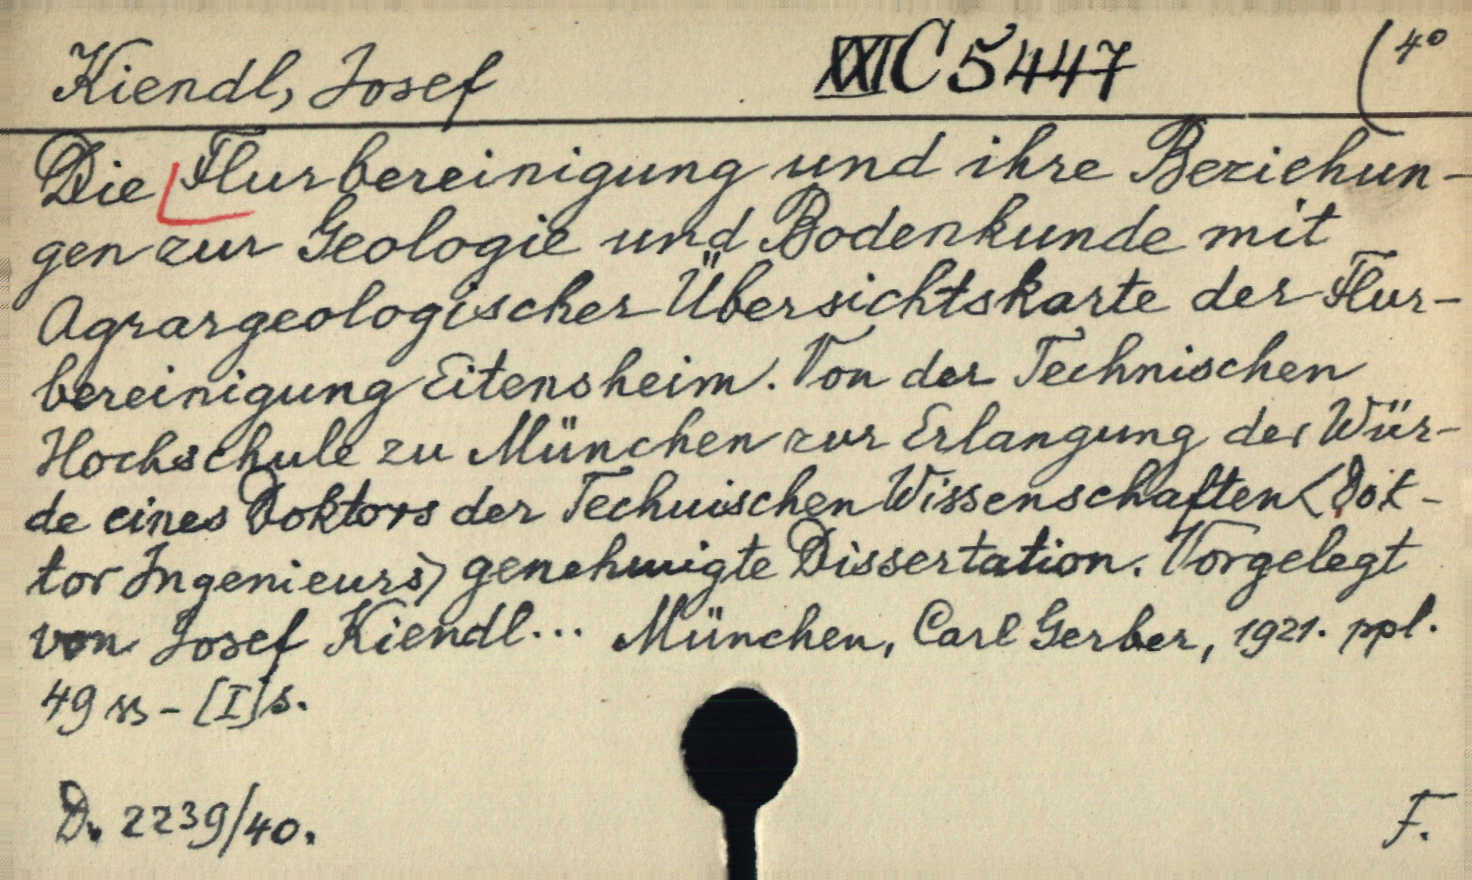 Kiendl, Josef XXI C 5447 (4°
Die Flurbereinigung und ihre Beziehun-
gen zur Geologie und Bodenkunde mit
Agrargeologischer Übersichtskarte der Flur-
bereinigung Eitensheim. Von der Technischen
Hochschule zu München zur Erlangung der Wür-
de eines Doktors der Technischen Wissenschaften (Dok-
tor Ingenieurs) genehmigte Dissertation. Vorgelegt
von Josef Kiendl... München, Carl Gerber, 1921. ppl.
49 ss - [I] s.
D. 2239/40. F.